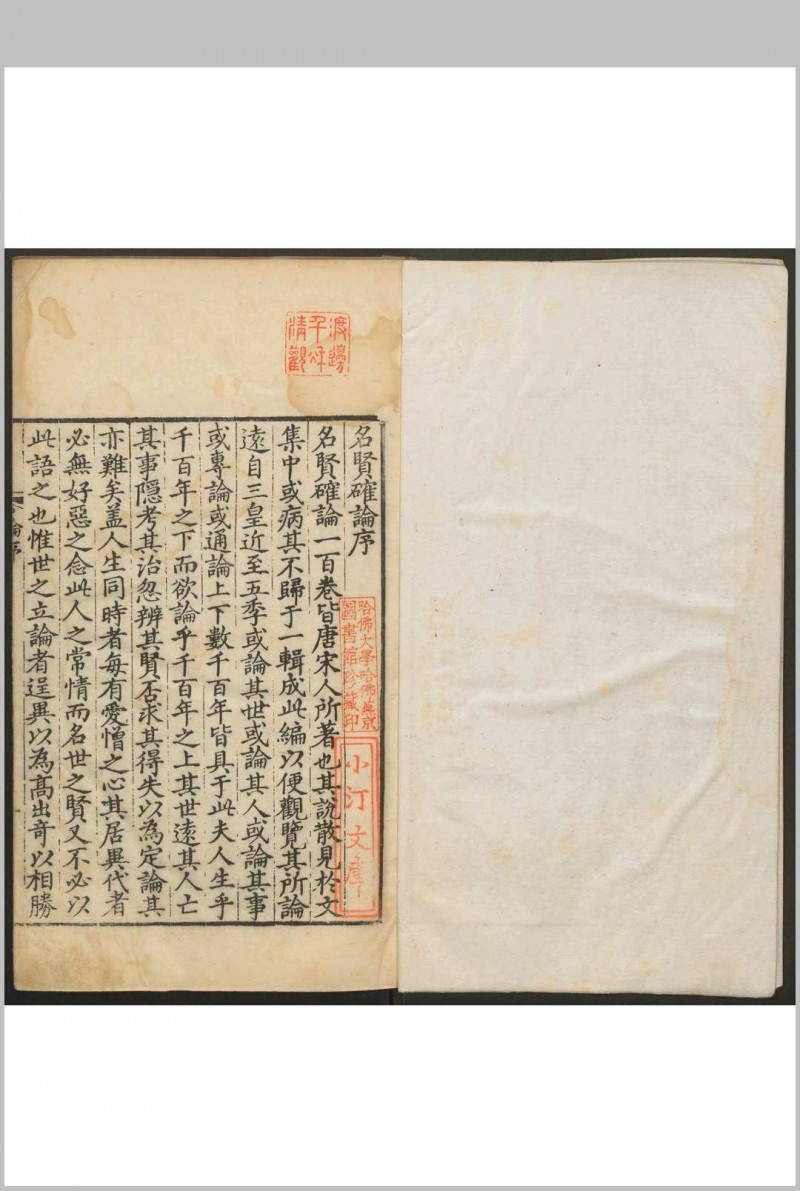 名賢確論序
名賢確論一百卷皆唐宋人所著也其說散見於文
集中或病其不歸于一輯成此編以便觀覽其所論
遠自三皇近至五季或論其世或論其人或論其事
或專論或通論上下數千百年皆具于此夫人生乎
千百年之下而欲論乎千百年之上其世遠其人亡
其事隱考其治忽辨其賢否求其得失以為定論其
亦難矣盖人生同時者每有愛憎之心其居異代者
必無好惡之念此人之常情而名世之賢又不必以
此語之也惟世之立論者逞異以為高出奇以相勝
論序
渡邊
千秌
清觀
哈佛大學哈佛燕京
圖書館珍藏印
小汀文庫